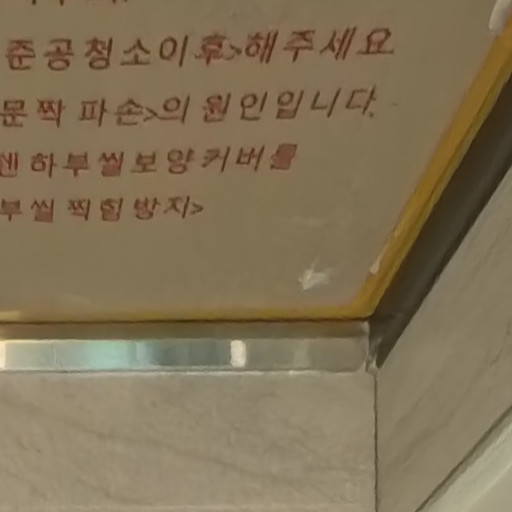 준공청소이후>해주세요
문짝 파손>의 원인입니다.
하부씰보양커버를
부씰 찍힘방지>